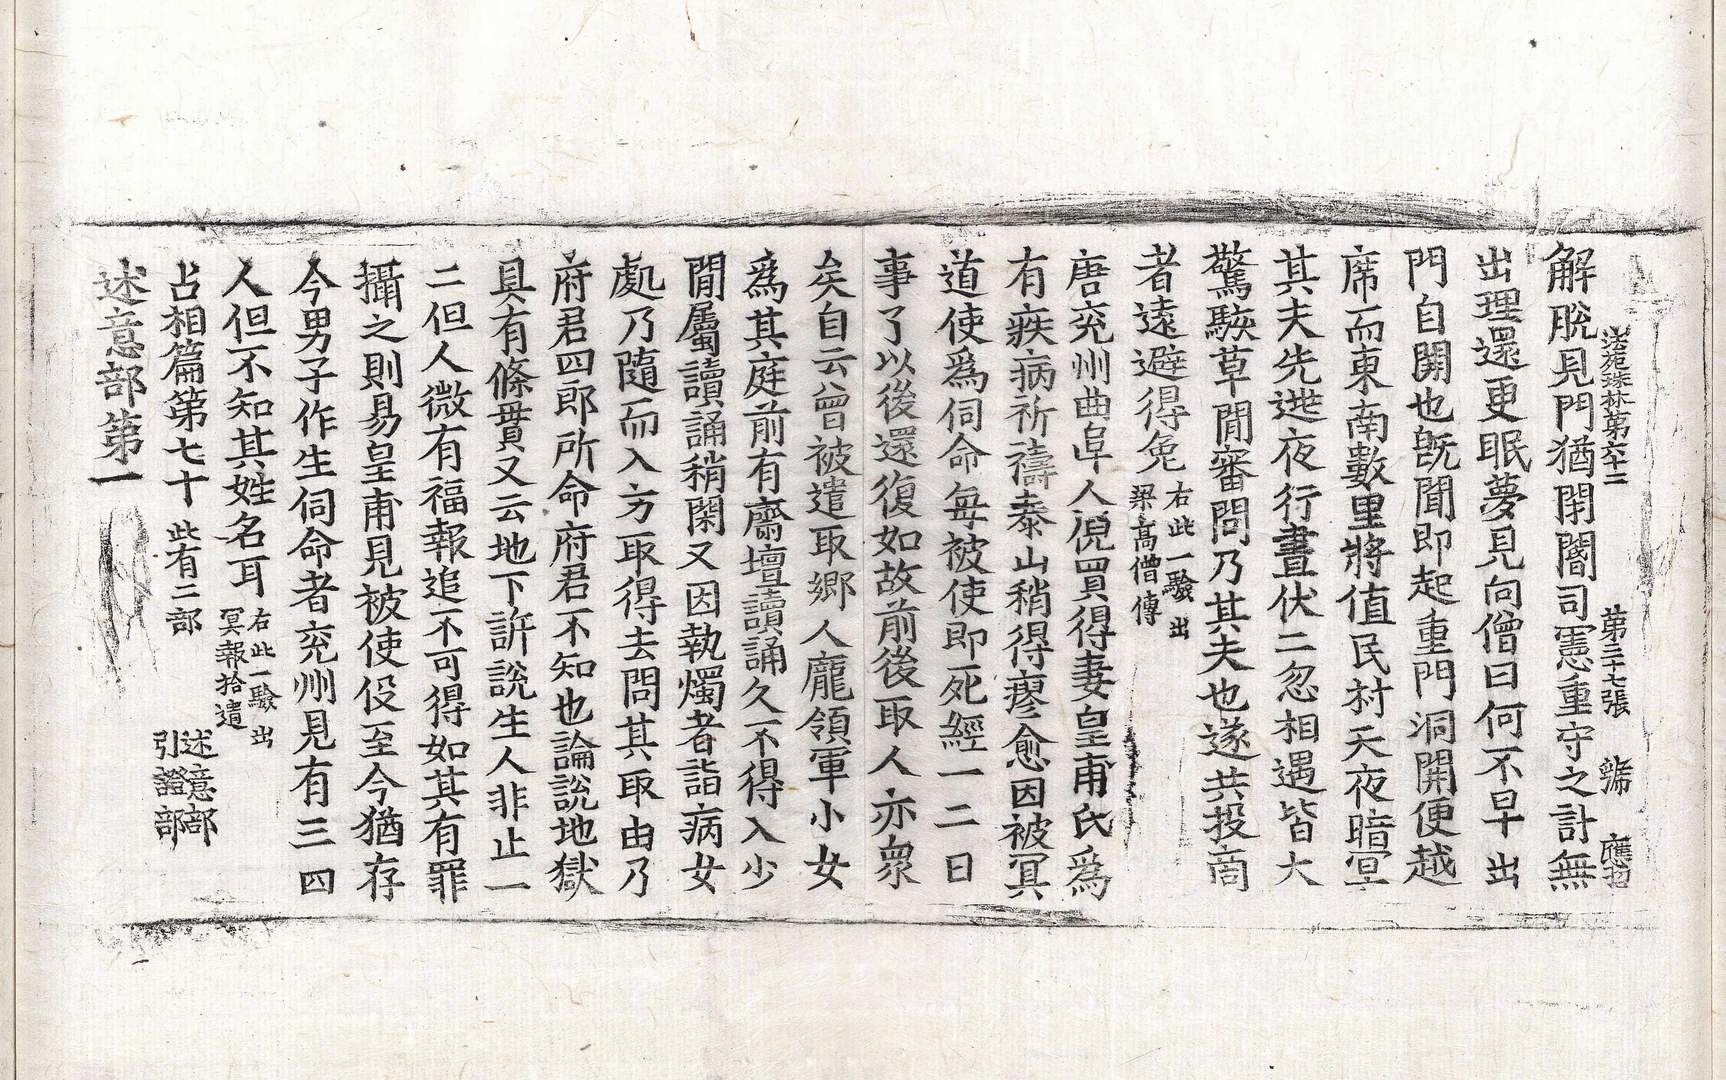 法苑珠林第六十二　第三十七張　號　應
解脫見門猶閉閽司憲重守之計無
出理還更眠夢見向僧曰何不早出
門自開也旣聞即起重門洞開便越
席而東南數里將值民村天夜暗冥
其夫先逃夜行晝伏二忽相遇皆大
驚駭草間審問乃其夫也遂共投商
者遠避得免右此一驗出
梁高僧傳
唐兖州曲阜人倪買得妻皇甫氏爲
有疾病祈禱泰山稍得瘳愈因被冥
道使爲伺命每被使即死經一二日
事了以後還復如故前後取人亦衆
矣自云曾被遣取鄉人龐領軍小女
爲其庭前有齋壇讀誦久不得入少
閒屬讀誦稍閑又因執燭者詣病女
處乃隨而入方取得去問其取由乃
府君四郎所命府君不知也論說地獄
具有條貫又云地下訴說生人非止一
二但人微有福報追不可得如其有罪
攝之則易皇甫見被使役至今猶存
今男子作生伺命者兖州見有三四
人但不知其姓名耳右此一驗出
冥報拾遺
占相篇第七十此有二部　述意部
引證部
述意部第一